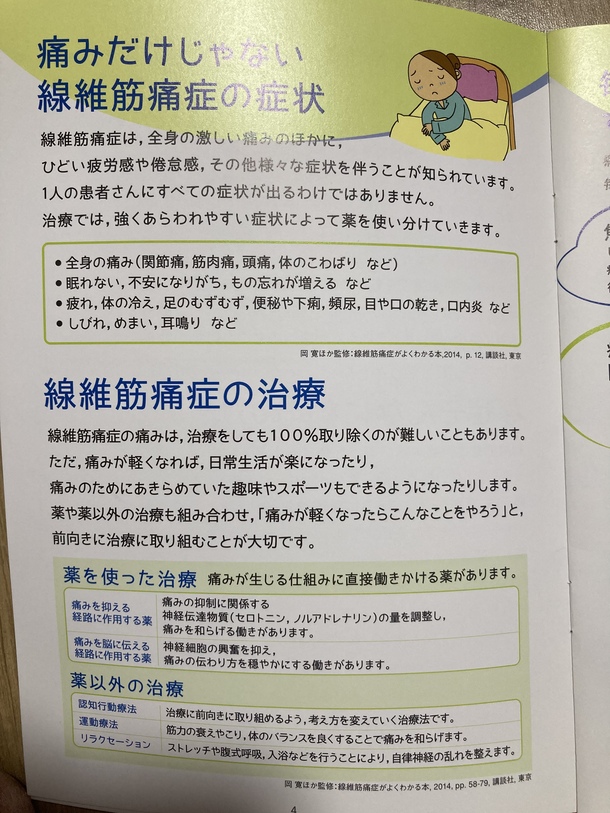 痛みだけじゃない
線維筋痛症の症状
線維筋痛症は，全身の激しい痛みのほかに，
ひどい疲労感や倦怠感，その他様々な症状を伴うことが知られています。
1人の患者さんにすべての症状が出るわけではありません。
治療では，強くあらわれやすい症状によって薬を使い分けていきます。
• 全身の痛み（関節痛，筋肉痛，頭痛，体のこわばり など）
• 眠れない，不安になりがち，もの忘れが増える など
• 疲れ，体の冷え，足のむずむず，便秘や下痢，頻尿，目や口の乾き，口内炎 など
• しびれ，めまい，耳鳴り など
岡 寛ほか監修：線維筋痛症がよくわかる本，2014, p. 12, 講談社，東京
線維筋痛症の治療
線維筋痛症の痛みは，治療をしても100%取り除くのが難しいこともあります。
ただ，痛みが軽くなれば，日常生活が楽になったり，
痛みのためにあきらめていた趣味やスポーツもできるようになったりします。
薬や薬以外の治療も組み合わせ，「痛みが軽くなったらこんなことをやろう」と，
前向きに治療に取り組むことが大切です。
薬を使った治療 痛みが生じる仕組みに直接働きかける薬があります。
痛みを抑える
経路に作用する薬
痛みの抑制に関係する
神経伝達物質（セロトニン，ノルアドレナリン）の量を調整し，
痛みを和らげる働きがあります。
痛みを脳に伝える
経路に作用する薬
神経細胞の興奮を抑え，
痛みの伝わり方を穏やかにする働きがあります。
薬以外の治療
認知行動療法 治療に前向きに取り組めるよう，考え方を変えていく治療法です。
運動療法 筋力の衰えやこり，体のバランスを良くすることで痛みを和らげます。
リラクセーション ストレッチや腹式呼吸，入浴などを行うことにより，自律神経の乱れを整えます。
岡 寛ほか監修：線維筋痛症がよくわかる本，2014, pp. 58-79, 講談社，東京
4